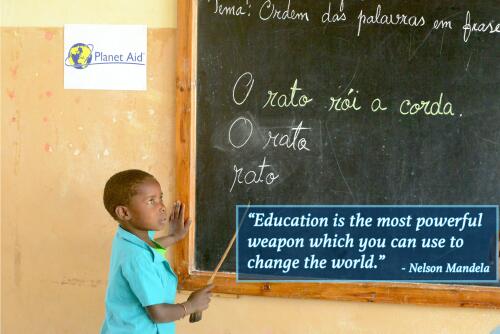 Tema: Ordem das palavras em frase
Planet Aid
O rato rói a corda.
O rato
rato
“Education is the most powerful
weapon which you can use to
change the world.”
- Nelson Mandela